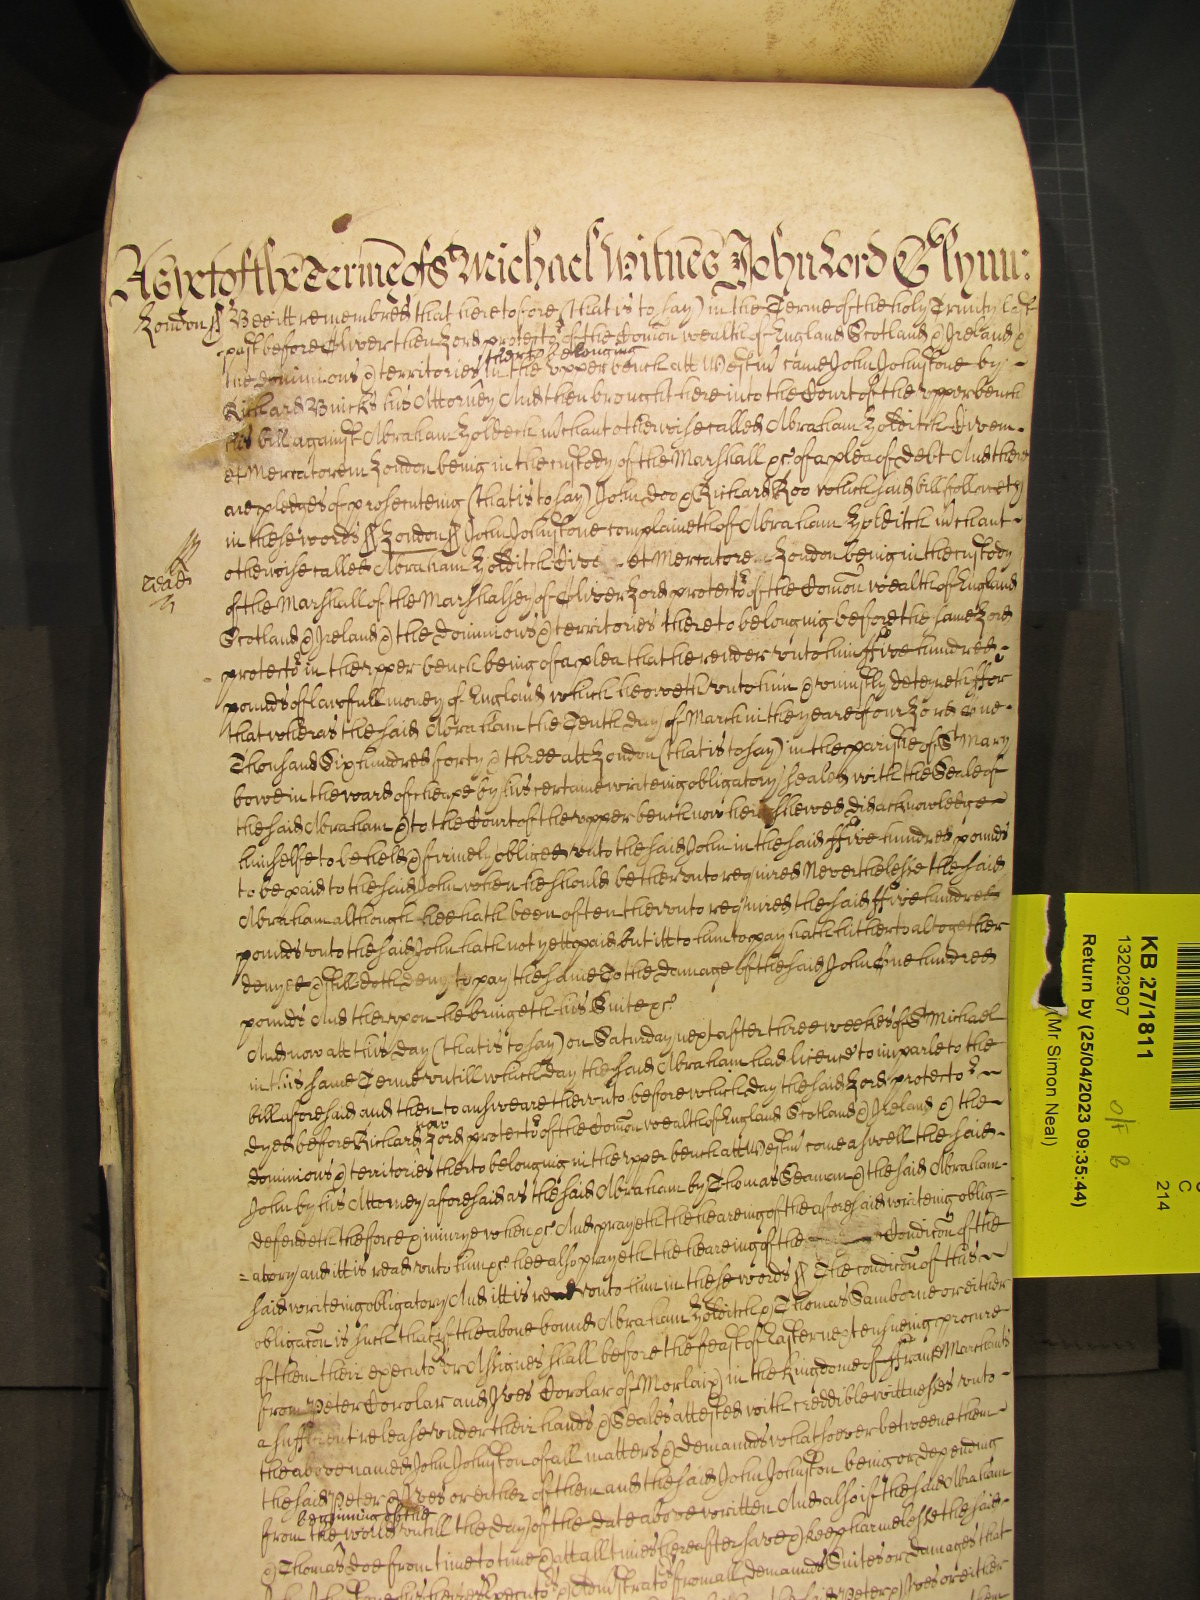 As yet of the Terme of St Michael Witnes John Lord Glynn:
London ss Bee itt remembred that heretofore (that is to say) in the Terme of the holy Trinity last
past before Oliver then Lord protector of the Comon wealth of England Scotland & Ireland &
thereto belonging
the dominions & territories in the upper bench att Westmr came John Johnstone by
Richard Buick his Attorney And then brought here into the Court of the upper bench
his bill against Abraham Holditch mchant otherwise called Abraham Holditch Civem
et Mercatorem London being in the custody of the Marshall &c of a plea of debt And there
are pledges of prosecuteing (that is to say) John Doo & Richard Roo which said bill followeth
in these words ss London ss John Johnstone complaineth of Abraham Holditch mchant
otherwise called Abraham Holditch Cive et Mercatore London being in the custody
Lead
of the Marshall of the Marshalsey of Oliver Lord protector of the Comon wealth of England
Scotland & Ireland & the dominions & territories thereto belonging before the same Lord
protector in the upper bench being of a plea that he render unto him ffive hundred
pounds of lawfull money of England which he oweth unto him & uniustly deteyneth ffor
that wheras the said Abraham the Tenth day of March in the yeare of our Lord One
Thousand Six hundred forty & three att London (that is to say) in the parishe of St Mary
bowe in the ward of cheape by his certaine writeing obligatory sealed with the Seale of
the said Abraham & to the Court of the upper bench now here shewed did acknowledge
himselfe to be held & firmely obliged unto the said John in the said ffive hundred pounds
to be paid to the said John when he should be therunto required Neverthelesse the said
Abraham although hee hath been often therunto required the said ffive hundred
pounds unto the said John hath not yett paid but itt to him to pay hath hitherto altogether
denyed & still doth deny to pay the same To the damage of the said John One hundred
pounds And therupon he bringeth his Suite &c
And now att this day (that is to say) on Saturday next after three weekes of St Michael
in this same Terme untill which day the said Abraham had licence to imparle to the
bill aforesaid and then to answeare therunto before which day the said Lord protector
now
dyed before Richard Lord protector of the Comon wealth of England Scotland & Ireland & the
dominions & territories therto belonging in the upper bench att Westmr come aswell the said
John by his Attorney aforesaid as the said Abraham by Thomas Seaman & the said Abraham
defendeth the force & iniurye when &c And prayeth the heareing of the aforesaid writeing oblig=
=atory and itt is read unto him &c he also prayeth the heareing of the Condicon of the
said writeing obligatory And itt is read unto him in these words ss The condicon of this
obligacon is such that if the above bound Abraham Holditch & Thomas Samborne or either
of them their executors or Assignes shall before the feast of Easter next ensueing procure
from Peter Corolar and Ives Corolar of Morlaix in the kingdome of ffrance Marchants
a sufficient release under their hands & Seales attested with creddible wittnesses unto
the above named John Johnston of all matters & demaunds whatsoever betweene them
the said Peter & Ives or either of them and the said John Johnston being or depending
beginning of the
from the world untill the day of the date above written And also if the said Abraham
& Thomas doe from time to time & att all times hereafter save & keep harmelesse the said
John Johnstone his heires Executors & Administrators from all demaunds Suites or damages that
the said Peter & Ives or either
KB 27/1811
13202907
Return by (25/04/2023 09:35:44)
(Mr Simon Neal)
C
214